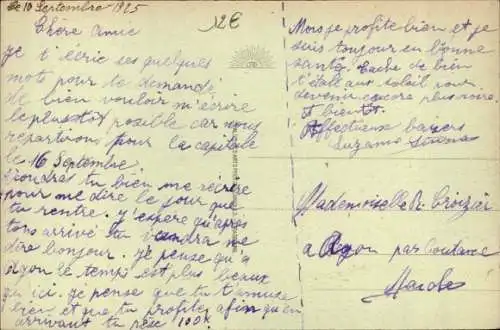 le 10 Septembre 1925
12€
Chère Amie
je t'écris ces quelques
mots pour te demandé
de bien vouloir m'écrire
le plus tôt posible car nous
repartirons pour la capitale
le 16 Septembre
voudras tu bien me récrire
pour me dire le jour que
tu rentre. j'espère qu'après
tons arrivé tu viendra me
dire bonjour. je pense qu'a
Agon le temps est plus beaux
qu'ici. je pense que tu t'amuse
bien et que tu profites afin qu'en
arrivant tu pèse 100K
Mois je profite bien et je
suis toujour en bonne
santé. Tache de bien
t'étall aux soleil pour
devenir encore plus noire
A bientot
Affectueux baisers
Suzanne
Mademoiselle R. Croizier
a Agon par Coutance
Manche